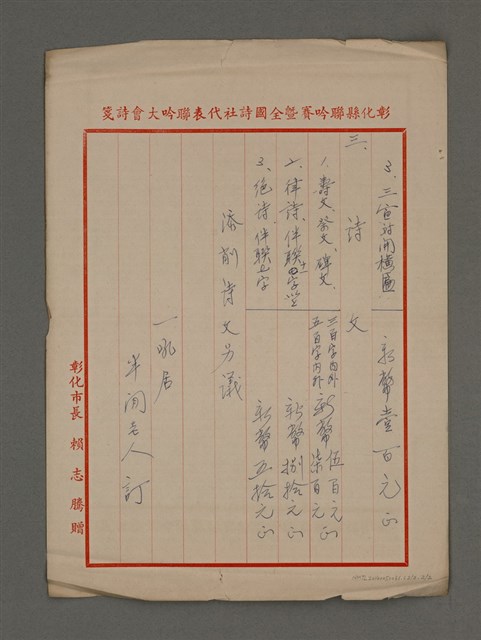 彰化縣聯吟賽暨全國詩社代表聯吟大會詩箋
3、三宣對開橫匾 新幣壹百元正
三、詩文
1、壽文、祭文、碑文、三百字內外 新幣伍百元
五百字內外 柒百元正
2、律詩、伴聯 新幣捌拾元正
3、絕詩伴聯七字 新幣五拾元正
添削詩文另議
一吼居
半閒老人訂
彰化市長 賴志騰贈